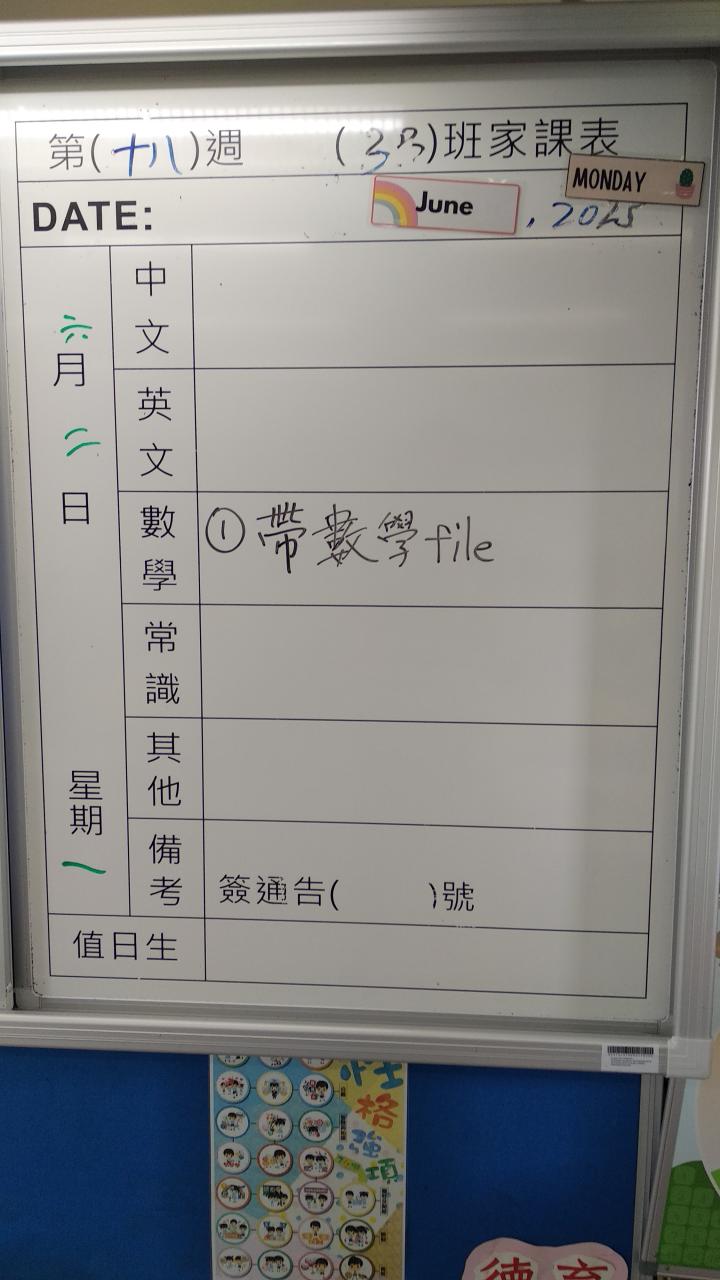 第(十八)週 (3B)班家課表
MONDAY
DATE: June , 2025
六月二日 星期一
中文
英文
數學 ①帶數學file
常識
其他
備考 簽通告( )號
值日生
性格強項
德育